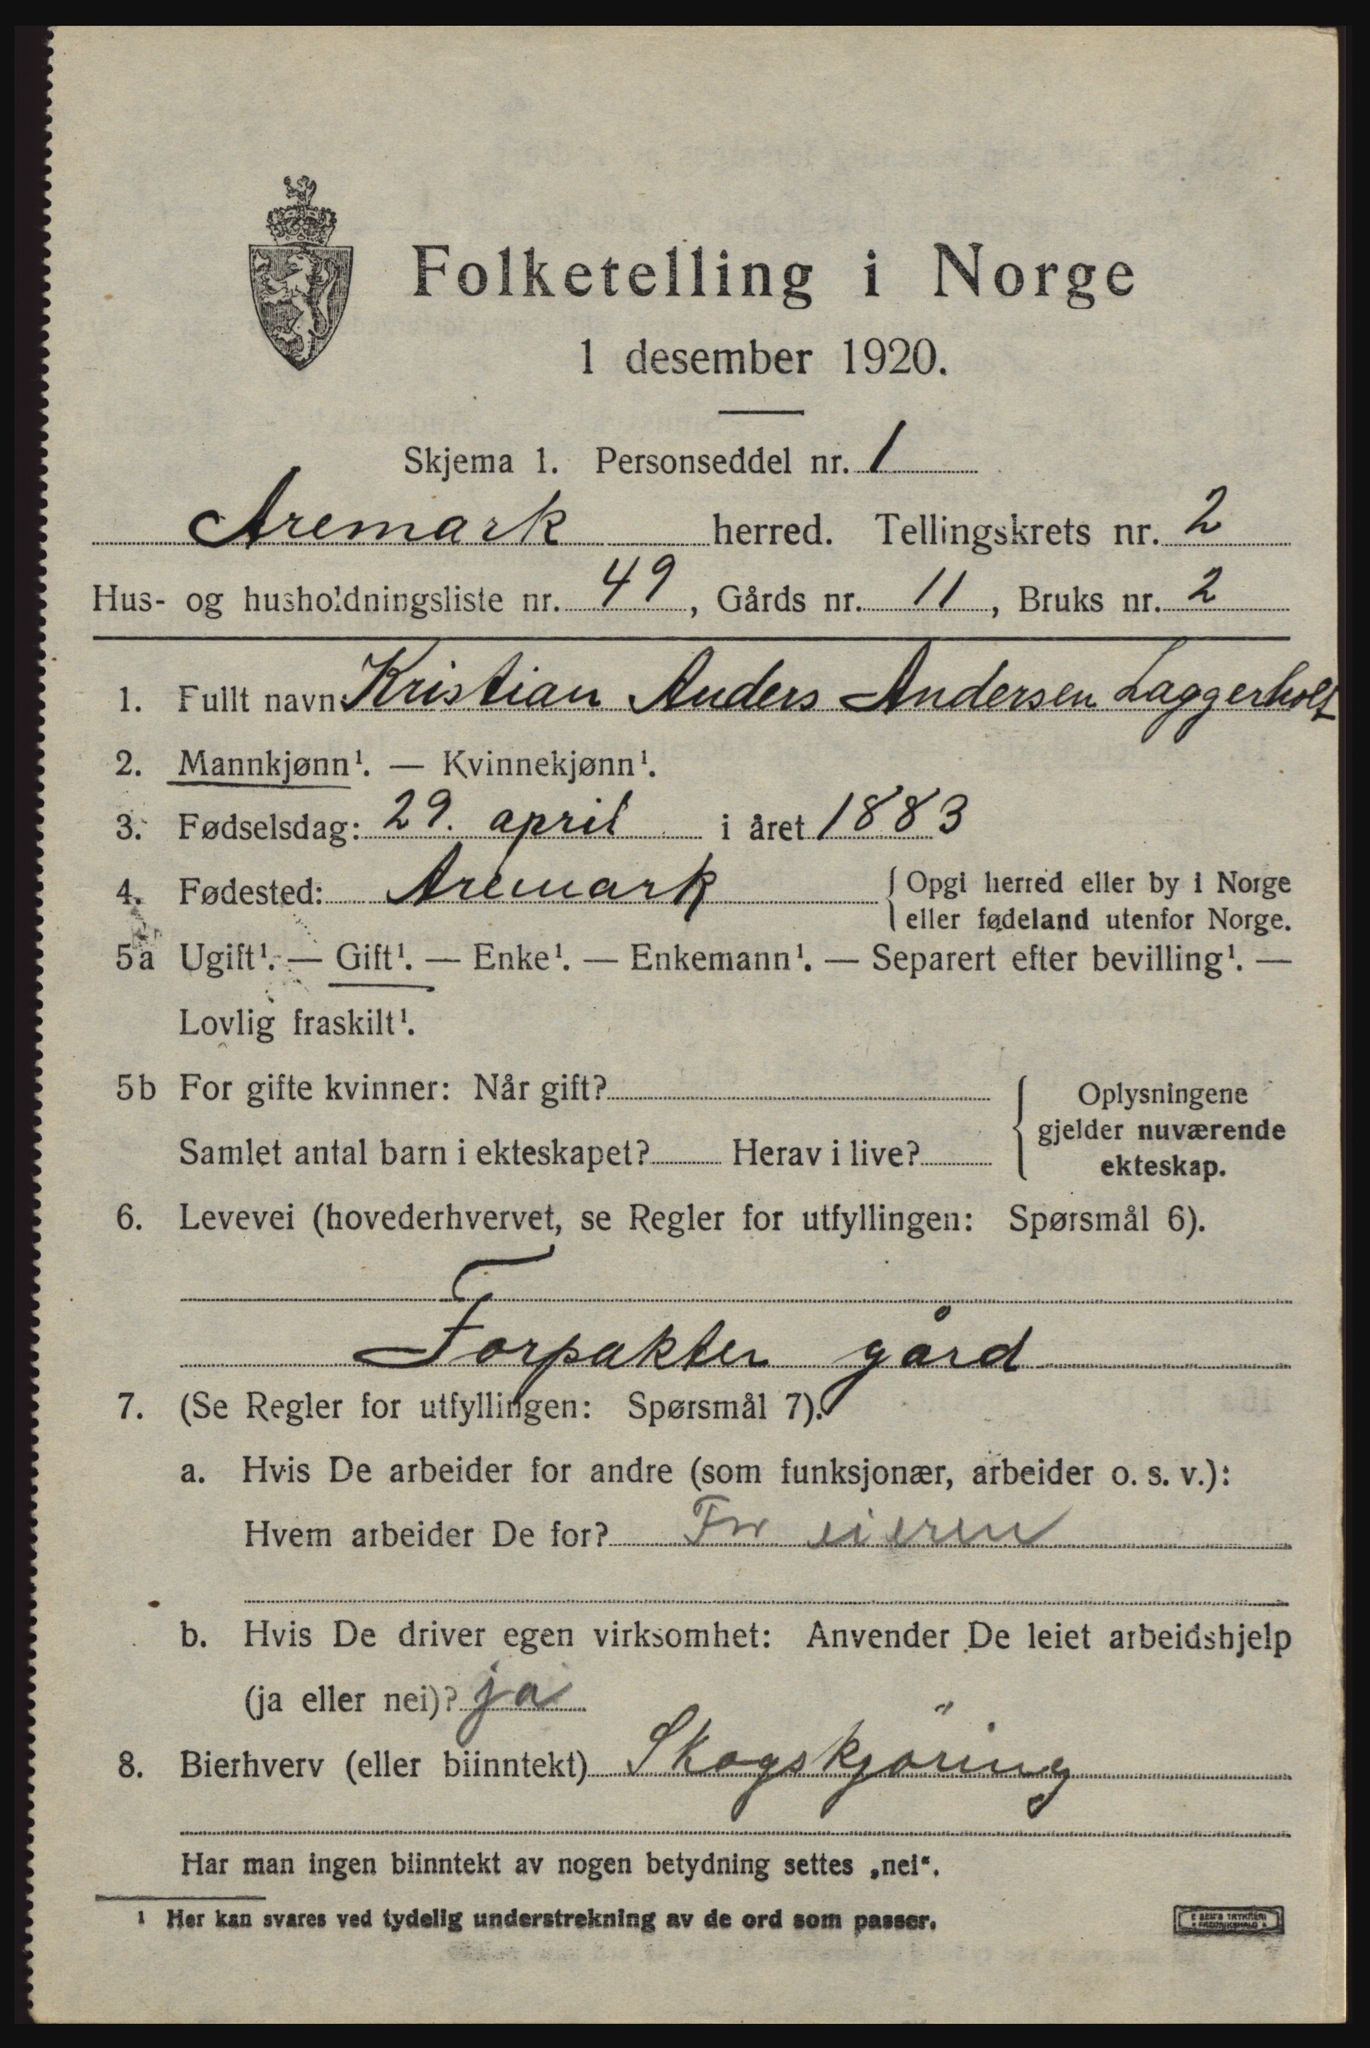 Folketelling i Norge
1 desember 1920.
Skjema 1. Personseddel nr. 1
Aremark herred. Tellingskrets nr. 2
Hus- og husholdningsliste nr. 49, Gårds nr. 11, Bruks nr. 2
1. Fullt navn Kristian Anders Andersen Laggerholt
2. Mannkjønn¹. — Kvinnekjønn¹.
3. Fødselsdag: 29. april i året 1883
4. Fødested: Aremark { Opgi herred eller by i Norge
eller fødeland utenfor Norge.
5a Ugift¹. — Gift¹. — Enke¹. — Enkemann¹. — Separert efter bevilling¹. —
Lovlig fraskilt¹.
5b For gifte kvinner: Når gift?
Samlet antal barn i ekteskapet? Herav i live?
{ Oplysningene
gjelder nuværende
ekteskap.
6. Levevei (hovederhvervet, se Regler for utfyllingen: Spørsmål 6).
Forpakter gård
7. (Se Regler for utfyllingen: Spørsmål 7).
a. Hvis De arbeider for andre (som funksjonær, arbeider o. s. v.):
Hvem arbeider De for? For eieren
b. Hvis De driver egen virksomhet: Anvender De leiet arbeidshjelp
(ja eller nei)? ja
8. Bierhverv (eller biinntekt) Skogskjöring
Har man ingen biinntekt av nogen betydning settes „nei“.
¹ Her kan svares ved tydelig understrekning av de ord som passer.